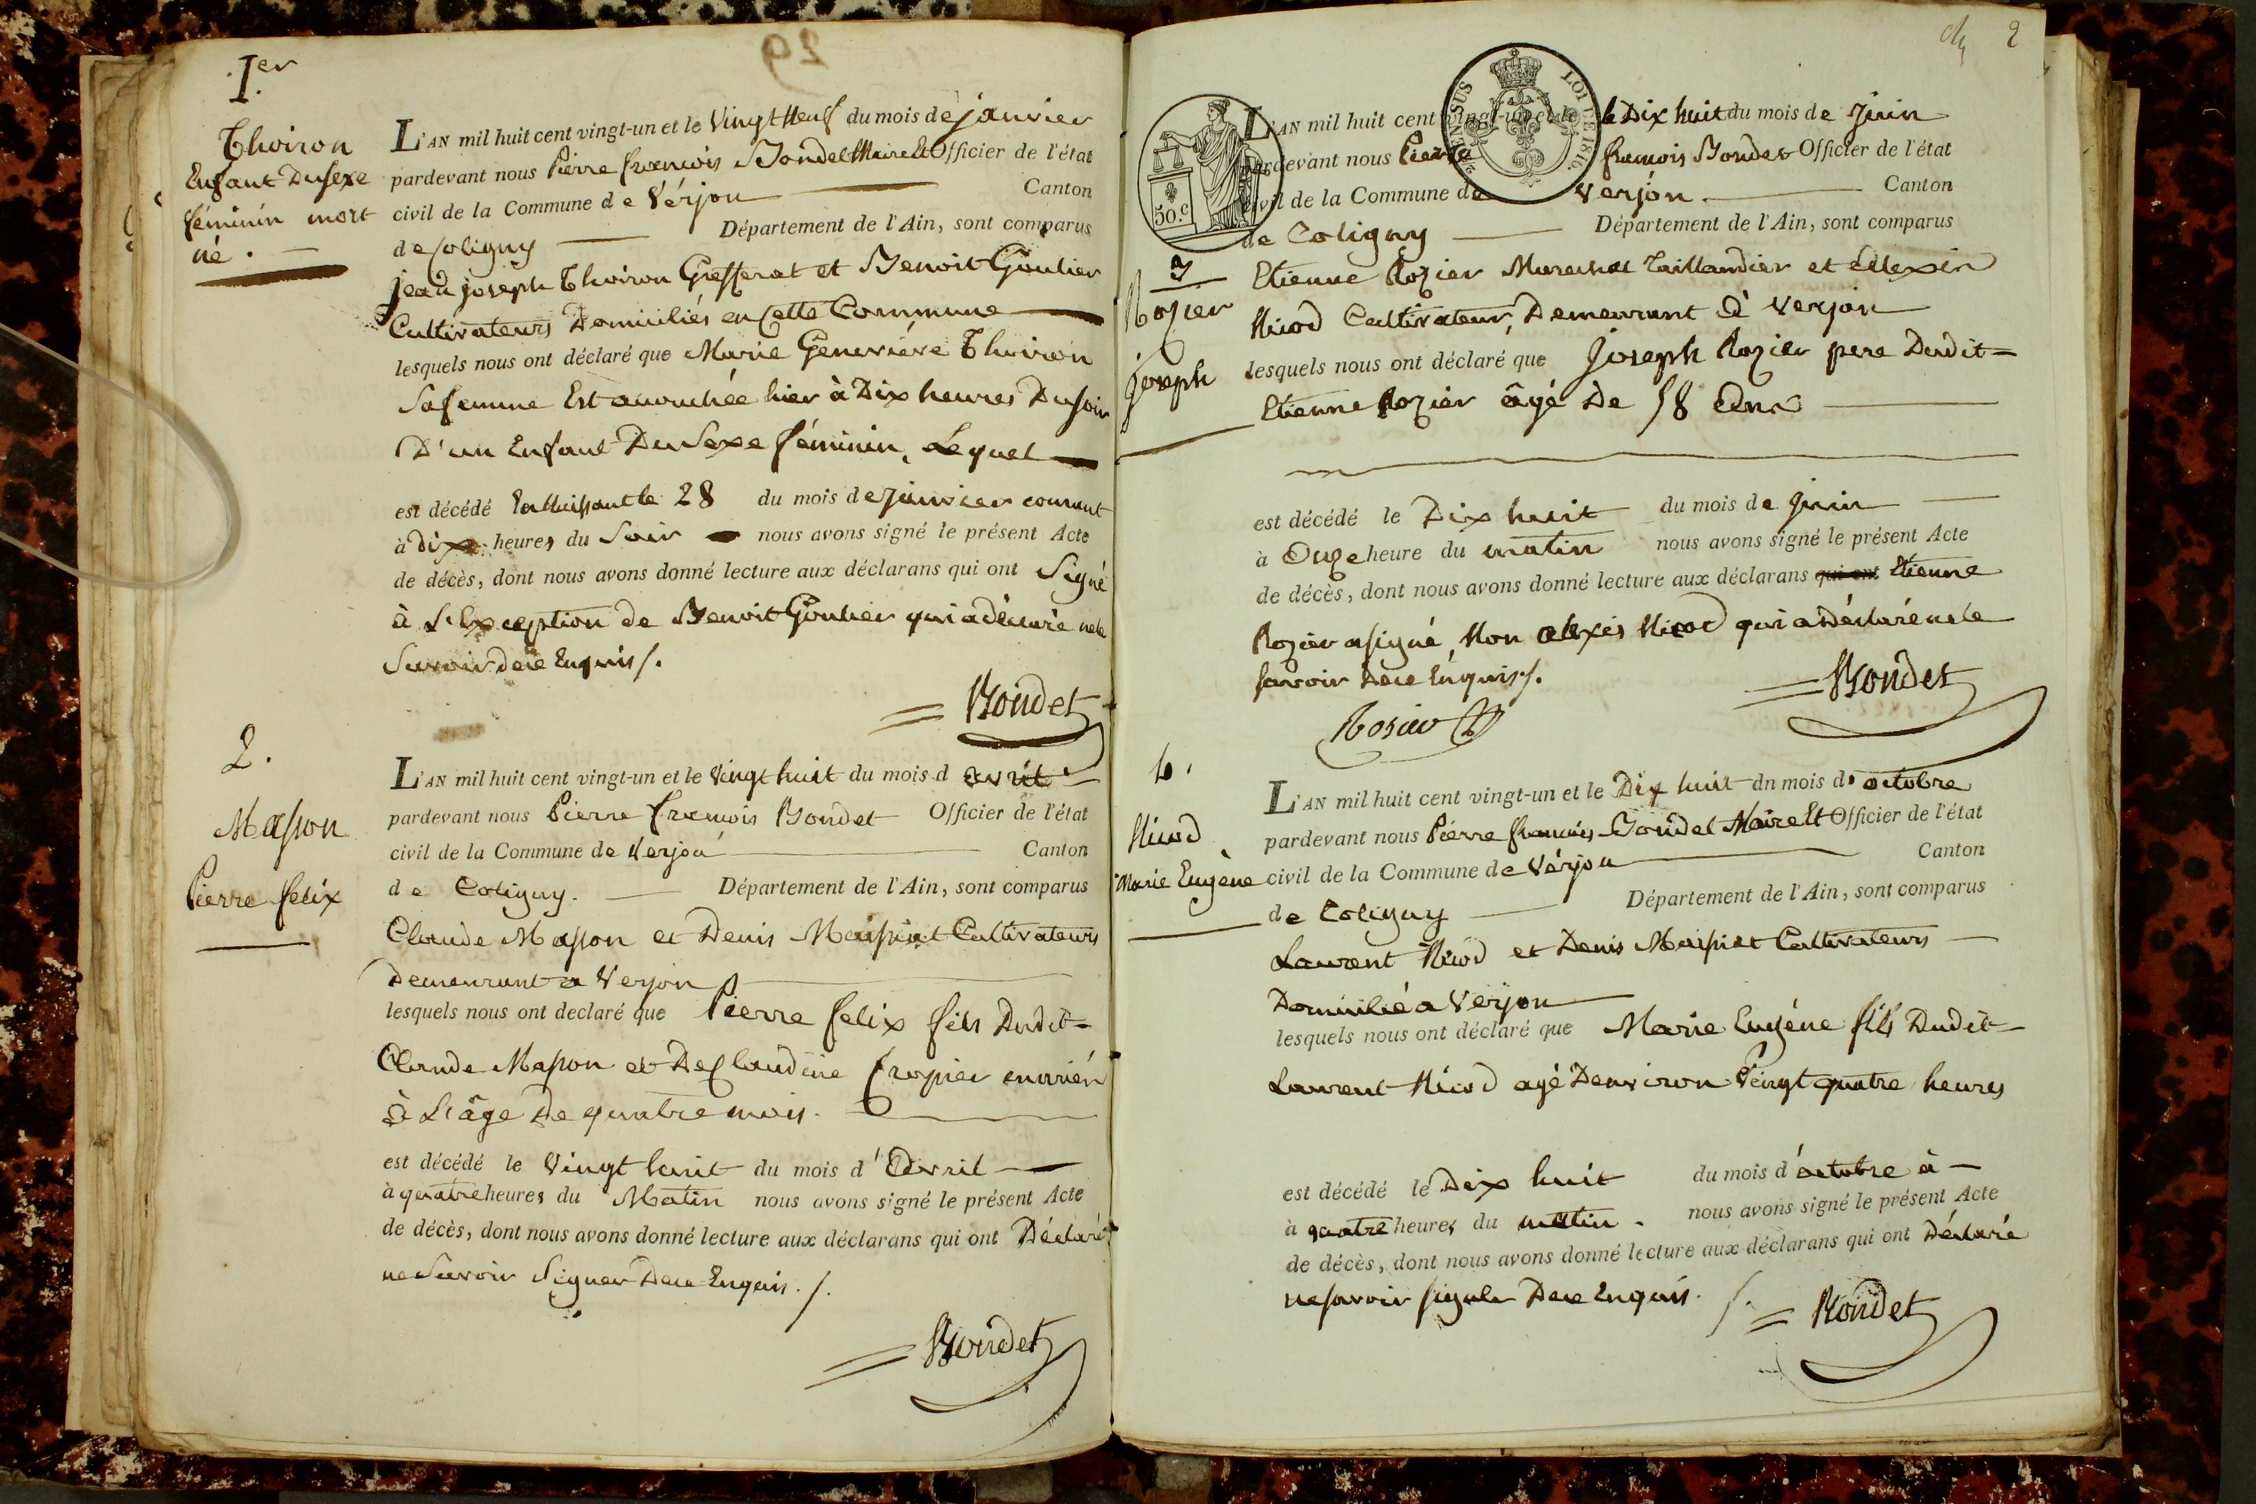 1.er
Thoiron
Enfant Du sexe
féminin mort
né.
L'AN mil huit cent vingt-un et le Vingt Neuf du mois de janvier
pardevant nous Pierre françois Bondet Maire Et Officier de l'état
civil de la Commune de Vérjon Canton
de Coligny Département de l'Ain, sont comparus
jean joseph Thoiron et Benoit Goulier
Cultivateurs Domiciliés en Cette Commune
lesquels nous ont déclaré que Marie Geneviéve Thoiron
Sa femme Est acouchée hier à Dix heures Du soir
D'un Enfant Du Sexe féminin, Lequel
est décédé En Naissant le 28 du mois de janvier courant
à Dix heures du Soir nous avons signé le présent Acte
de décès, dont nous avons donné lecture aux déclarans qui ont Signé
à L'Exception de Benoit Goulier qui a déclaré ne le
Savoir de ce Enquis /.
Bondet
2.
Masson
Pierre felix
L'AN mil huit cent vingt-un et le Vingt huit du mois d avril
pardevant nous Pierre françois Bondet Officier de l'état
civil de la Commune de Verjon Canton
de Coligny. Département de l'Ain, sont comparus
Claude Masson et Denis Maissiat Cultivateurs
Demeurant a Verjon
lesquels nous ont declaré que Pierre felix fils Dudit
Claude Masson et De Claudine
à L'âge De quatre mois.
est décédé le Vingt huit du mois d'Avril
à quatre heures du Matin nous avons signé le présent Acte
de décès, dont nous avons donné lecture aux déclarans qui ont Déclaré
ne Savoir Signer De ce Enquis. /.
Bondet
2
50.c
LOI DE 1816
L'AN mil huit cent vingt-un et le le Dix huit du mois de Juin
pardevant nous Pierre françois Bondet Officier de l'état
civil de la Commune de Verjon Canton
de Coligny Département de l'Ain, sont comparus
3
Rozier
joseph
Etienne Rozier Marechal Taillandier et Allexis
Nicod Cultivateur, Demeurant à Verjon
lesquels nous ont déclaré que Joseph Rozier pere Dudit
Etienne Rozier âgé De 58 Ans
est décédé le Dix huit du mois de Juin
à Onze heure du matin nous avons signé le présent Acte
de décès, dont nous avons donné lecture aux déclarans qui ont Etienne
Rozier a signé, Non Alexis Nicod qui a Déclaré ne le
savoir De ce Enquis /.
Bondet
Rosier
4.
Nicod
Marie Eugène
L'AN mil huit cent vingt-un et le Dix huit dn mois d'octobre
pardevant nous Pierre françois Bondet Maire Et Officier de l'état
civil de la Commune de Vérjon Canton
de Coligny Département de l'Ain, sont comparus
Laurent Nicod et Denis Maissiat Cultivateurs
Domicilié a Verjon
lesquels nous ont déclaré que Marie Eugéne fils Dudit
Laurent Nicod agé Denviron Vingt quatre heures
est décédé le Dix huit du mois d'octobre à
à quatre heures du matin. nous avons signé le présent Acte
de décès, dont nous avons donné lecture aux déclarans qui ont Déclaré
ne savoir signer De ce Enquis. /.
Bondet